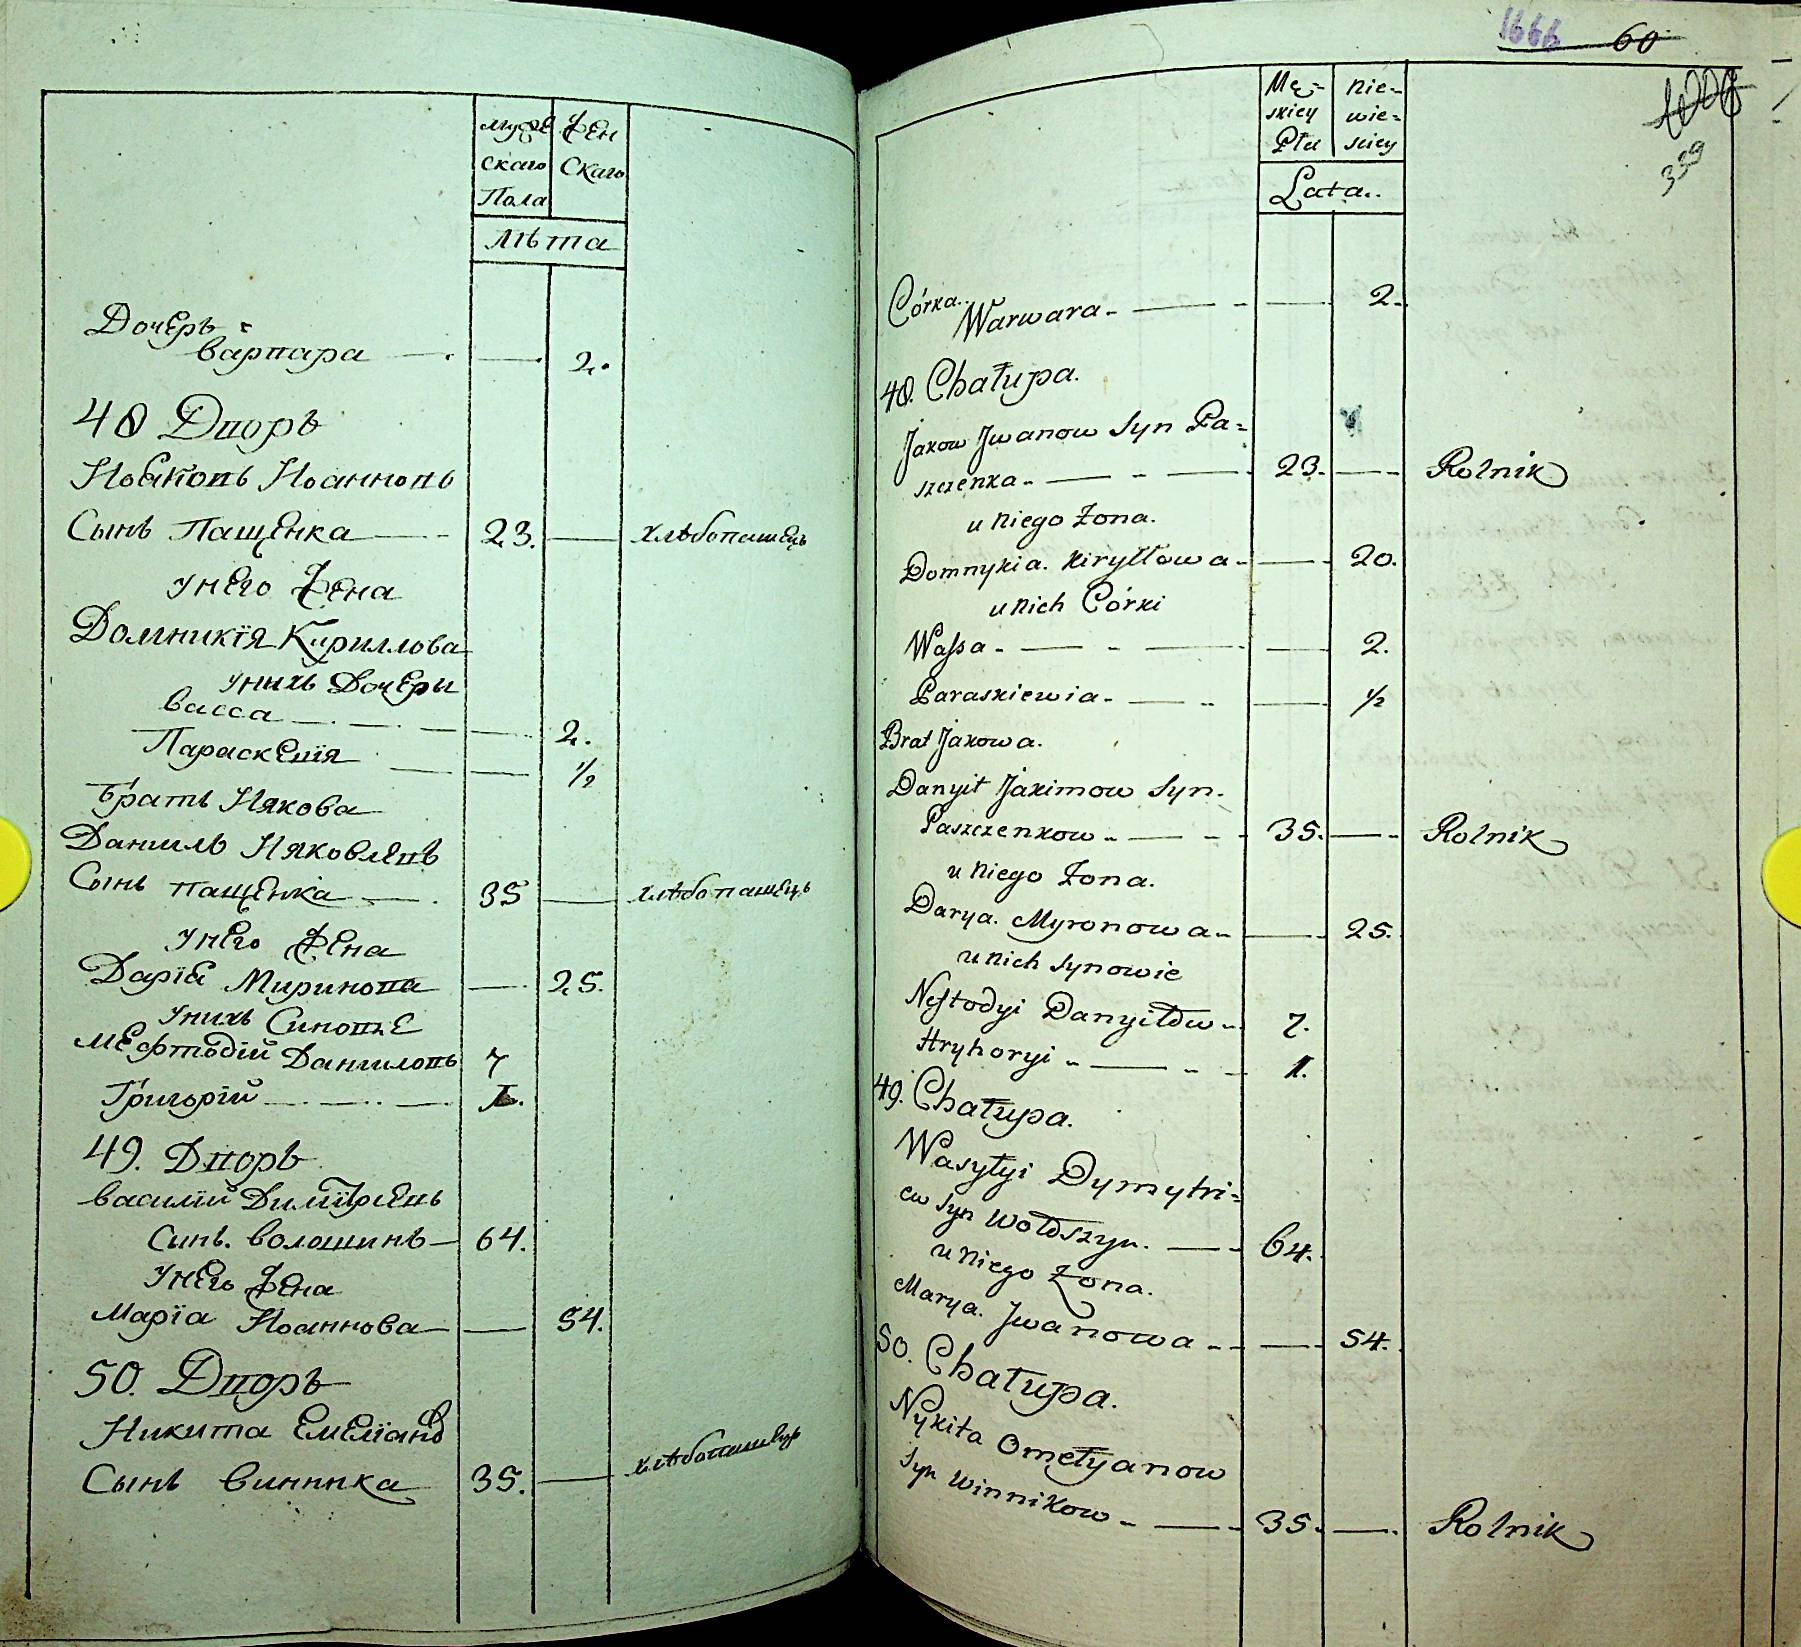 Мужес Жен
скаго Скаго
Пола
Лѣта
Дочерь
Варвара 2.
48 Дворъ
Иоаковъ Иоанновъ
Сынъ Пащенка 23. хлѣбопашецъ
унего Жена
Домникія Кириллова
унихъ Дочеры
Васса 2.
Параскевія 1/2
Братъ Иякова
Даниилъ Ияковлевъ
Сынъ пащенка 35 хлѣбопашецъ
унего Жена
Дарія Миринова 25.
унихъ Синовье
Мефтодій Даниловъ 7
Григорій 1.
49. Дворъ
Василій Димітріевъ
Сынъ. Волошинъ 64.
Унего Жена
Марїа Иоаннова 54.
50. Дворъ
Никита Емеліанов
Сынъ Винника 35. хлѣбопашецъ
1666 60
339
Mę= nie=
skiey wie=
Płu skiey
Lata..
Córka..
Warwara. 2.
48. Chałupa.
Jakow Jwanow Syn Pa=
szczenka 23. Rolnik
u niego Zona.
Domnykia. Kiryłłowa 20.
u nich Córki
Wassa 2.
Paraskiewia 1/2
Brat Jakowa.
Danyił Jakimow Syn.
Paszczenkow 35. Rolnik
u niego Zona.
Darya. Myronowa 25.
u nich Synowie
Neftodyi Danyiłow 7.
Hryhoryi 1.
49. Chałupa.
Wasyłyi Dymytri=
ew Syn Wołoszyn. 64.
u niego Zona.
Marya. Jwanowa 54.
50. Chałupa.
Nykita Omełyanow
Syn Winnikow 35. Rolnik